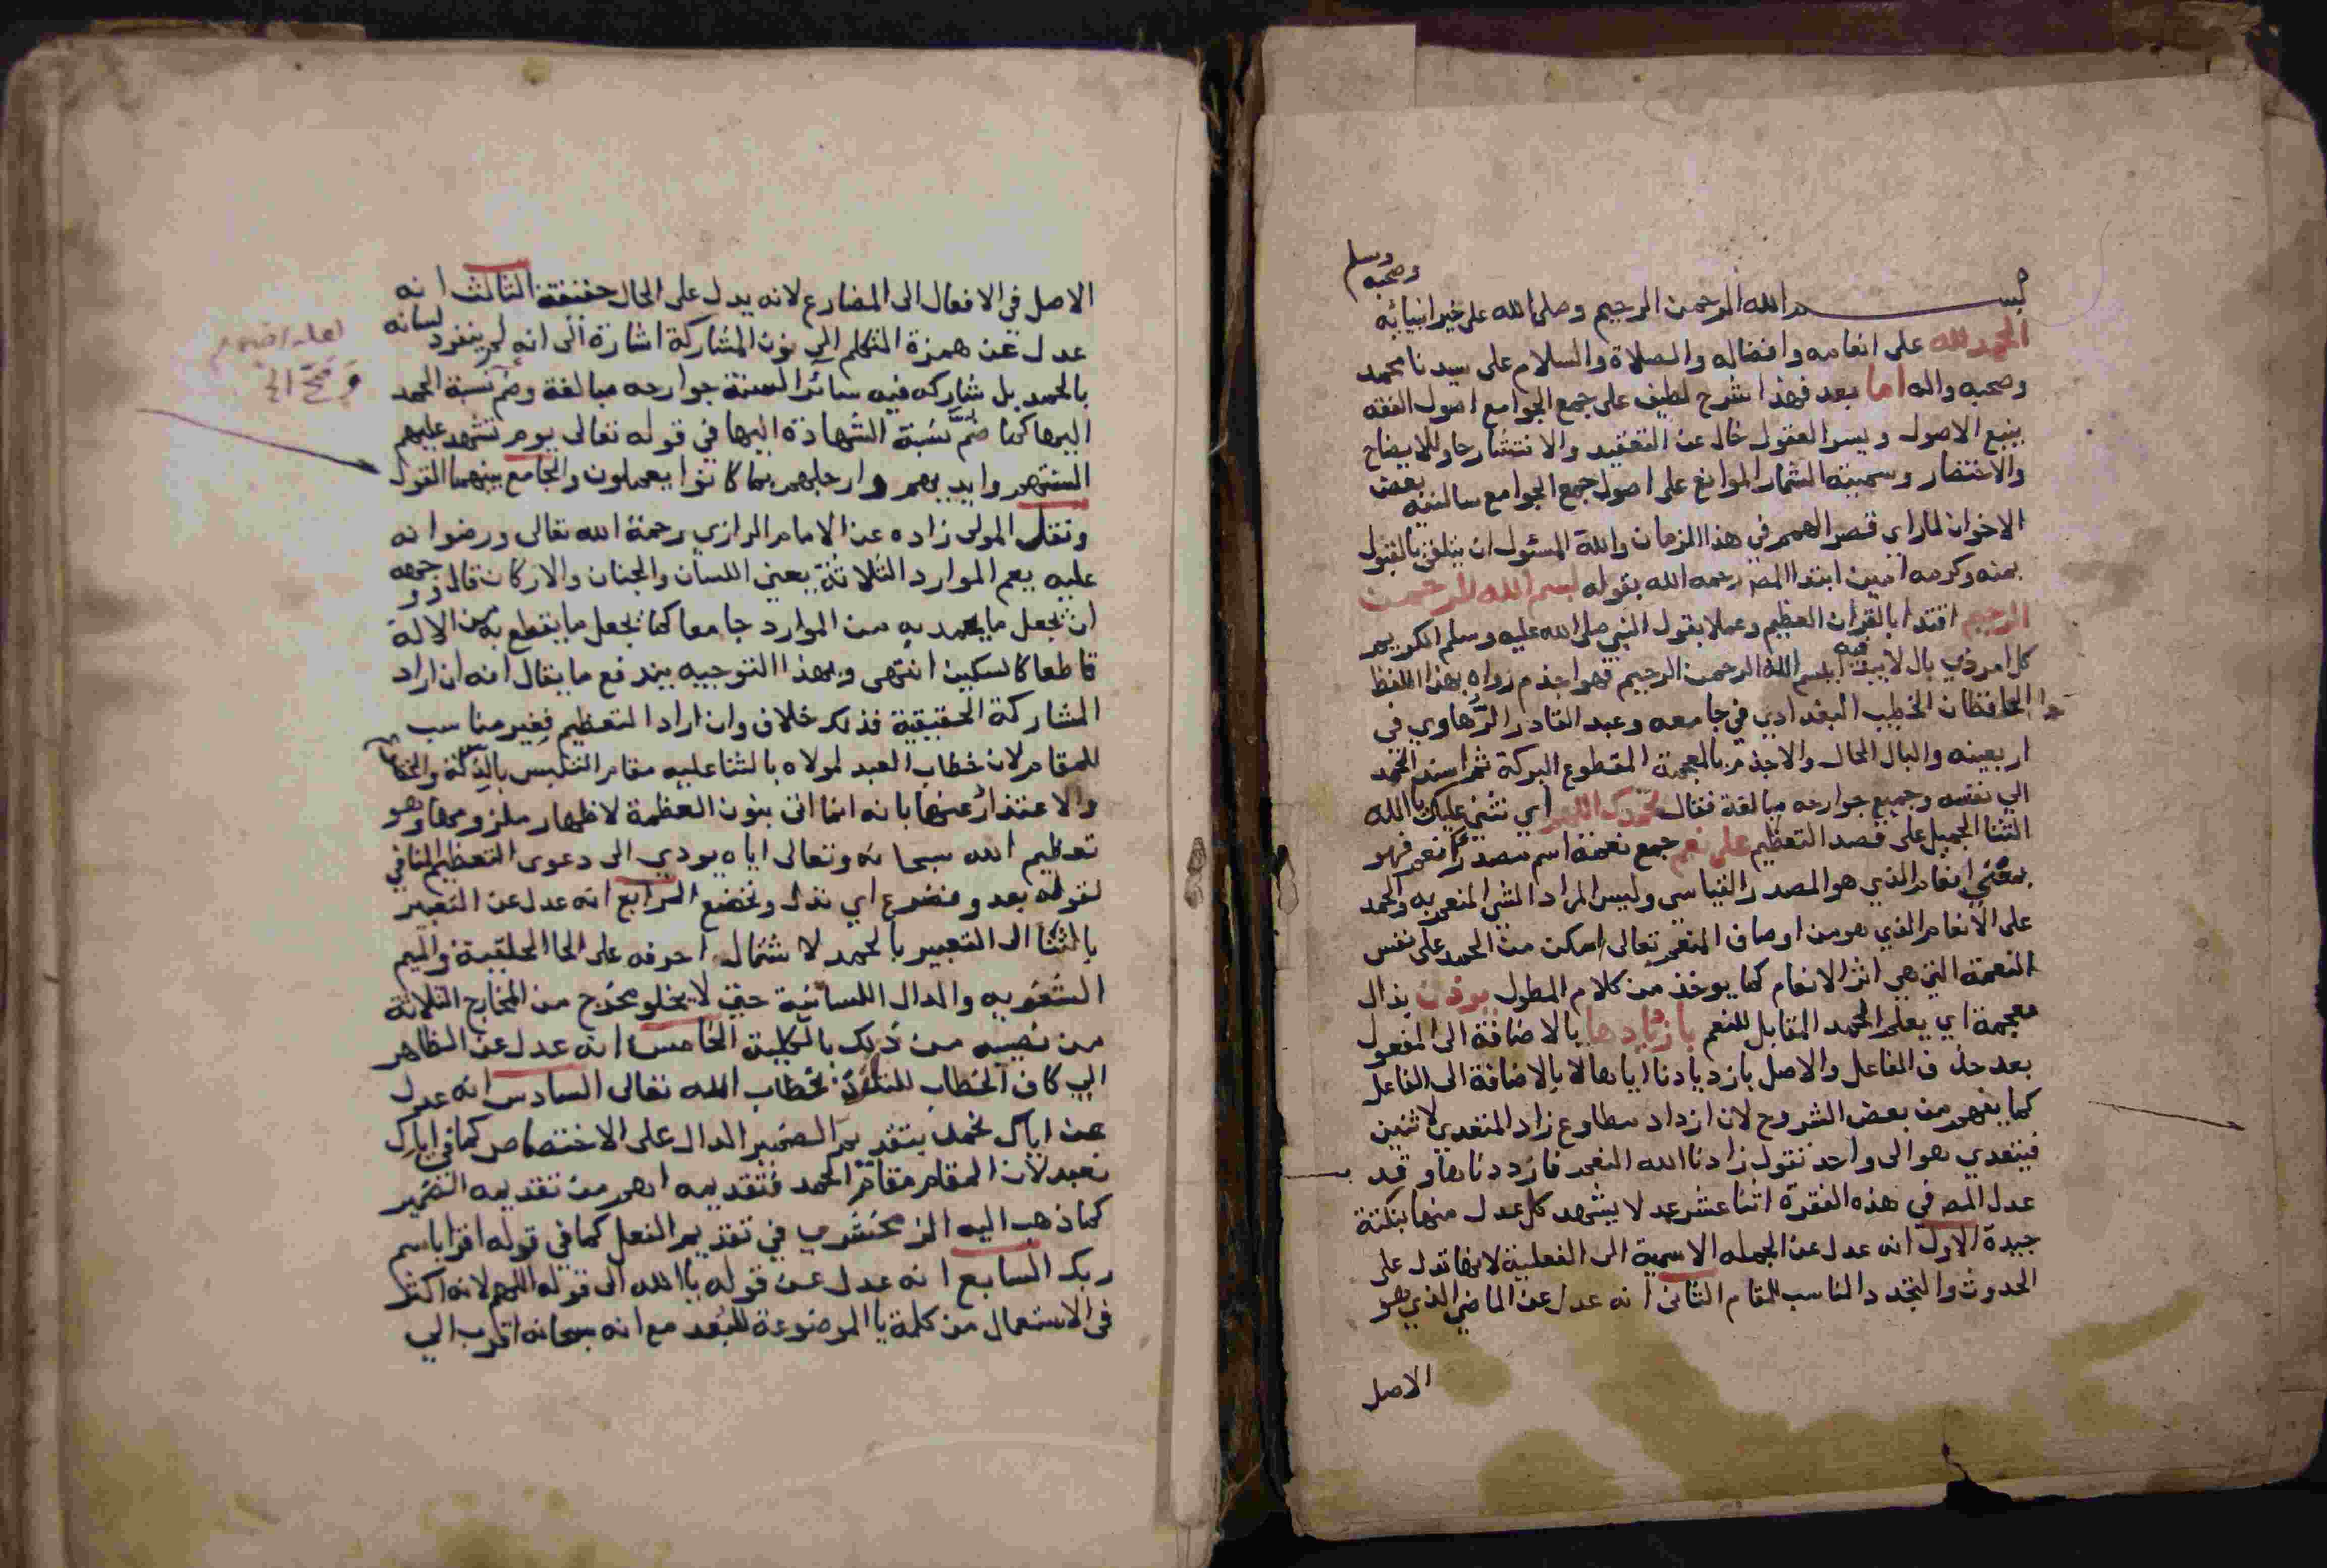 بسم الله الرحمن الرحيم وصلى الله على خير انبيائه
وصحبه وسلم
الحمد لله على انعامه وافضاله والصلاة والسلام على سيدنا محمد
وصحبه واله اما بعد فهذا شرح لطيف على جمع الجوامع اصول الفقه
ينبع الاصول ويسر العقول خال عن التعقيد والانتشار حاو للايضاح
والاختصار وسميته الثمار اليوانع على اصول جمع الجوامع سالنيه بعض
الاخوان لما راي قصر الهمم في هذا الزمان والله المسئول ان يتلقى بالقبول
بمنه وكرمه امين ابتدا المص رحمه الله بقوله بسم الله الرحمن
الرحيم اقتدا بالقران العظيم وعملا بقول النبي صلى الله عليه وسلم الكريم
كل امر ذي بال لا يبدا فيه ببسم الله الرحمن الرحيم فهو اجذم رواه بهذا اللفظ
الحافظان الخطيب البغدادي في جامعه وعبد القادر الرهاوي في
اربعينه والبال الحال والاجذم بالمعجمة المقطوع البركة ثم اسند الحمد
الي نفسه وجميع جوارحه مبالغة فقال نحمدك اللهم اي نثني عليك يا الله
الثنا الجميل على قصد التعظيم على نعم جمع نعمة اسم مصدر انعم فهو
بمعني انعام الذي هو المصدر القياسي وليس المراد الشي المنعم به والحمد
على الانعام الذي هو من اوصاف المنعم تعالى امكن من الحمد على نفس
النعمة التي هي اثر الانعام كما يوخذ من كلام المطول يوذن بذال
معجمة اي يعلم الحمد المقابل للنعم بازديادها بالاضافة الى المفعول
بعد حذف الفاعل والاصل بازديادنا اياها لا بالاضافة الى الفاعل
كما يفهم من بعض الشروح لان ازداد مطاوع زاد المتعدي لاثنين
فيتعدي هو الى واحد نقول زادنا الله النعم فازددناها وقد
عدل المص في هذه الفقرة اثنا عشر عدلا يشهد كل عدل منها بنكتة
جيدة الاول انه عدل عن الجمله الاسمية الى الفعلية لانها تدل على
الحدوث والتجدد المناسب للمقام الثاني انه عدل عن الماضي الذي هو
الاصل
الاصل في الافعال الى المضارع لانه يدل على الحال حقيقة الثالث انه
عدل عن همزة التكلم الي نون المشاركة اشارة الى انه لم ينفرد لسانه
بالحمد بل شاركه فيه سائر السنة جوارحه مبالغة وضم نسبة الحمد
اليها كما ضم نسبة الشهادة اليها في قوله تعالى يوم تشهد عليهم
السنتهم وايديهم وارجلهم بما كانوا يعملون والجامع بينهما القول
ونقل المولى زاده عن الامام الرازي رحمة الله تعالى ورضوانه
عليه يعم الموارد الثلاثة يعني اللسان والجنان والاركان قال ووجهه
ان نجعل ما يحمد به من الموارد جامعا كما نجعل ما يقطع به من الالة
قاطعا كالسكين انتهى وبهذا التوجيه يندفع ما يقال انه ان اراد
المشاركة الحقيقية فذلك خلاف وان اراد التعظيم فغير مناسب
للمقام لان خطاب العبد لمولاه بالثنا عليه مقام التلبس بالذلة
والاعتذار عنها بانه انما اتى بنون العظمة لاظهار ملزومها وهو
تعظيم الله سبحانه وتعالى اياه يودي الى دعوى التعظيم المنافي
لقوله بعد ونضرع اي نذل ونخضع الرابع انه عدل عن التعبير
بالثنا الى التعبير بالحمد لاشتمال احرفه على الحا الحلقية والميم
الشفوية والدال اللسانية حتى لا يخلو مخرج من المخارج الثلاثة
من نصيبه من ذلك بالكلية الخامس انه عدل عن الظاهر
الي كاف الخطاب للتلذذ بخطاب الله تعالى السادس انه عدل
عن اياك نحمد بتقديم الضمير الدال على الاختصاص كما في اياك
نعبد لان المقام مقام الحمد فتقديمه اهم من تقديم الضمير
كما ذهب اليه الزمخشري في تقديم الفعل كما في قوله اقرا باسم
ربك السابع انه عدل عن قوله يا الله الى قوله اللهم لانه اكثر
في الاستعمال من كلمة يا الموضوعة للبعد مع انه سبحانه اقرب الي